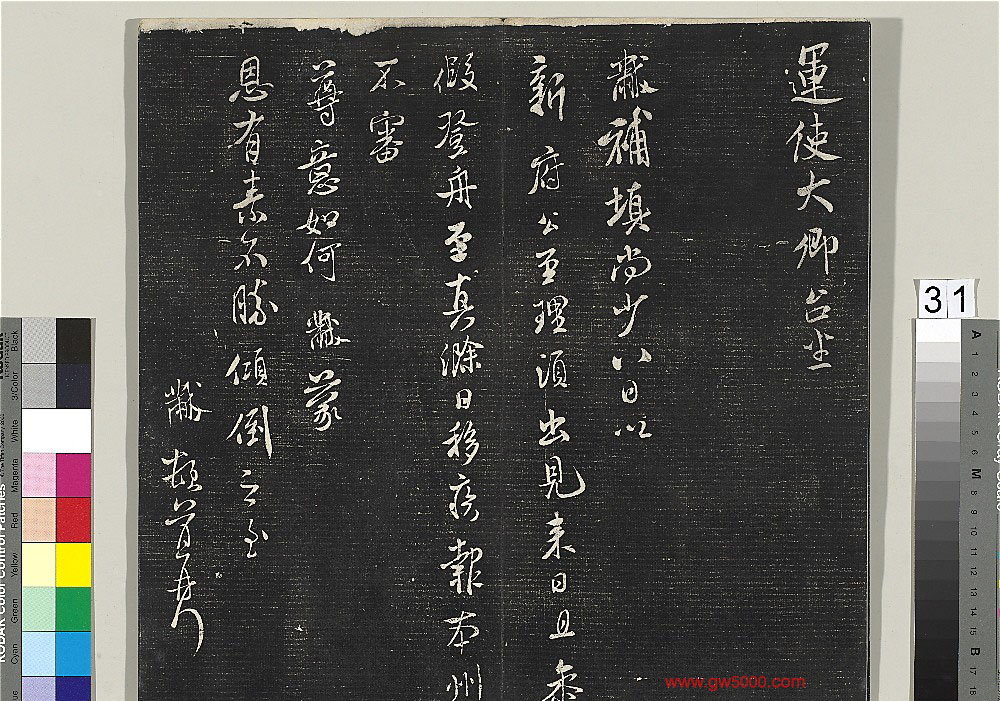 運使大卿台坐
黻補填尚少八日以
新府公至理須出見來日且參
假登舟至真滁日移疾報本州
不審
尊意如何黻蒙
恩有素不勝傾倒之至
黻頓首再拜
31
www.gw5000.com
KODAK Color Control Patches
Black
3/Color
White
Magenta
Red
Yellow
Green
Cyan
A
1
2
3
4
5
6
M
8
9
10
11
12
13
14
15
B
17
18